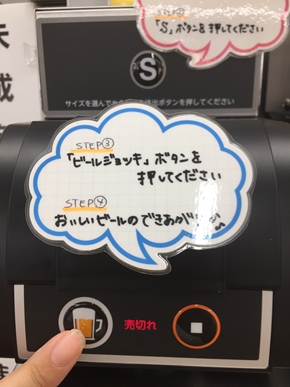 「S」ボタンを押してください
S
サイズを選んで
出ボタンを押してください
STEP③
「ビールジョッキ」ボタンを
押してください
STEP④
おいしいビールのできあがり
売切れ